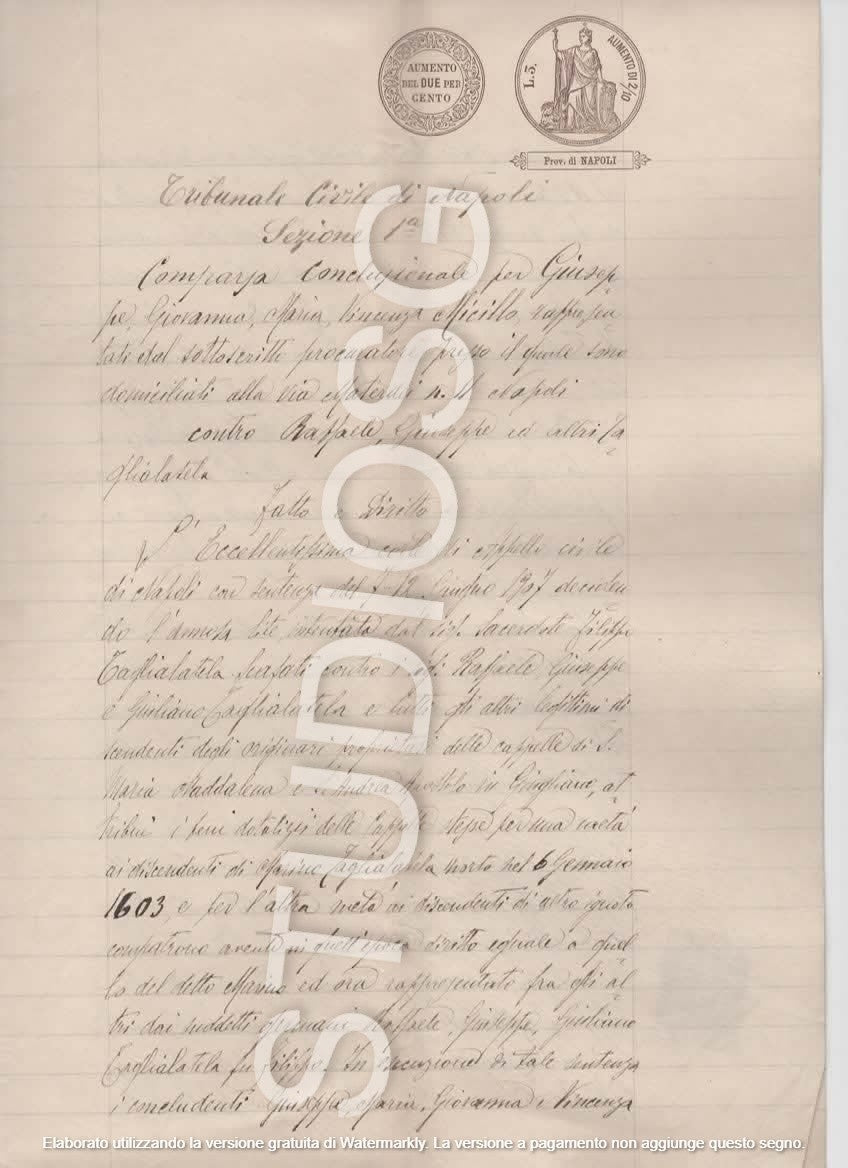 AUMENTO
DEL DUE PER
CENTO
L. 3.
AUMENTO DI 2/10
Prov. di NAPOLI
Tribunale Civile di Napoli
Sezione 1a
Comparsa Conclusionale per Giusep
pe, Giovanna, Maria, Vincenza Micillo, rappresen
tati dal sottoscritto procuratore presso il quale sono
domiciliati alla via Materdei n. Napoli
contro Raffaele, Giuseppe ed altri Ta
glialatela
Fatto e Diritto
L'Eccellentissima Corte di Appello civile
di Napoli con sentenza del Giugno 1907 deciden
do l'annosa lite intentata dal sig. Sacerdote Filippo
Taglialatela contro i sigi Raffaele, Giuseppe
e Giuliano Taglialatela e tutti gli altri legittimi di
scendenti degli originari proprietari delle cappelle di S.
Maria Maddalena e S. Andrea Apostolo in Giugliano, at
tribuì i beni dotalizi delle Cappelle stesse per una metà
ai discendenti di Marino Taglialatela morto nel 6 Gennaio
1603, e per l'altra metà ai discendenti di altro ignoto
compatrono avente in quell'epoca diritto eguale a quel
lo del detto Marino ed ora rappresentato fra gli al
tri dai suddetti germani Raffaele, Giuseppe, Giuliano
Taglialatela fu Filippo. In esecuzione di tale sentenza
i concludenti Giuseppe, Maria, Giovanna e Vincenza
STUDIOSG
Elaborato utilizzando la versione gratuita di Watermarkly. La versione a pagamento non aggiunge questo segno.